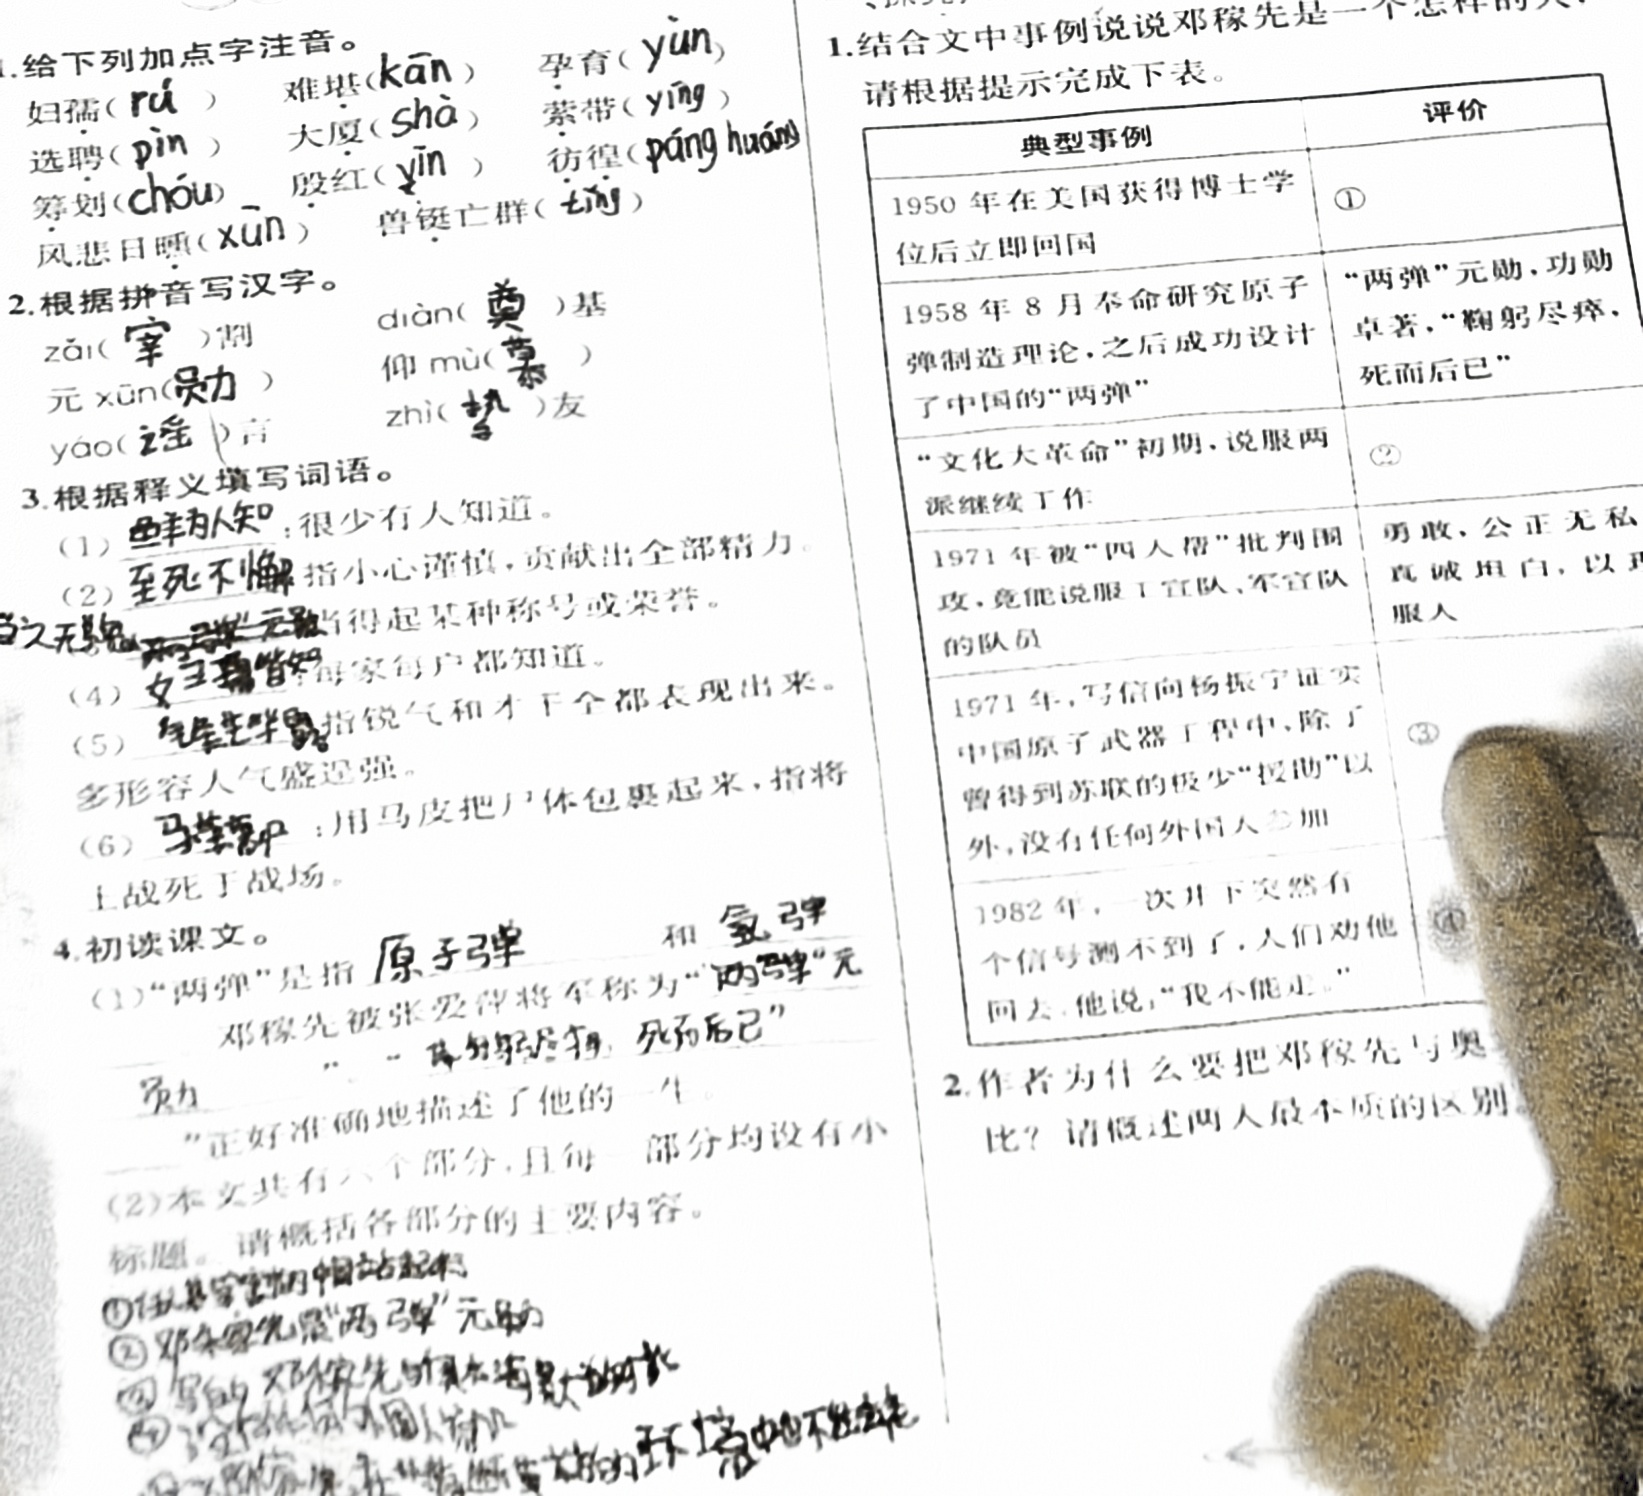 1.给下列加点字注音。
妇孺(rú) 难堪(kān) 孕育(yùn)
选聘(pìn) 大厦(shà) 萦带(yīng)
筹划(chóu) 殷红(yīn) 彷徨(páng huáng)
风悲日曛(xūn) 兽铤亡群(tǐng)
2.根据拼音写汉字。
zǎi(宰)割 diàn(奠)基
元xūn(勋) 仰mù(慕)
yáo(谣)言 zhì(挚)友
3.根据释义填写词语。
(1)鲜为人知:很少有人知道。
(2)至死不懈 指小心谨慎,贡献出全部精力。
当之无愧 当得起某种称号或荣誉。
(4) 妇孺皆知:每家每户都知道。
(5) 指锐气和才干全都表现出来。
多形容人气盛逞强。
(6) :用马皮把尸体包裹起来,指将
士战死于战场。
4.初读课文。
(1)“两弹”是指 原子弹 和 氢弹
邓稼先被张爱萍将军称为“两弹”元
勋 死而后已”
”正好准确地描述了他的一生。
(2)本文共有六个部分,且每一部分均设有小
标题。请概括各部分的主要内容。
②邓稼先是“两弹”元勋
1.结合文中事例说说邓稼先是一个怎样的人?
请根据提示完成下表。
典型事例 评价
1950 年在美国获得博士学 ①
位后立即回国
1958 年 8 月奉命研究原子 “两弹”元勋,功勋
弹制造理论,之后成功设计 卓著,“鞠躬尽瘁,
了中国的“两弹” 死而后已”
“文化大革命”初期,说服两 ②
派继续工作
1971 年被“四人帮”批判围 勇敢、公正无私
攻,竟能说服工宣队、军宣队 真诚坦白,以理
的队员 服人
1971 年,写信向杨振宁证实 ③
中国原子武器工程中,除了
曾得到苏联的极少“援助”以
外,没有任何外国人参加
1982 年,一次井下突然有 ④
个信号测不到了,人们劝他
回去,他说:“我不能走。”
2.作者为什么要把邓稼先与奥
比?请概述两人最本质的区别。